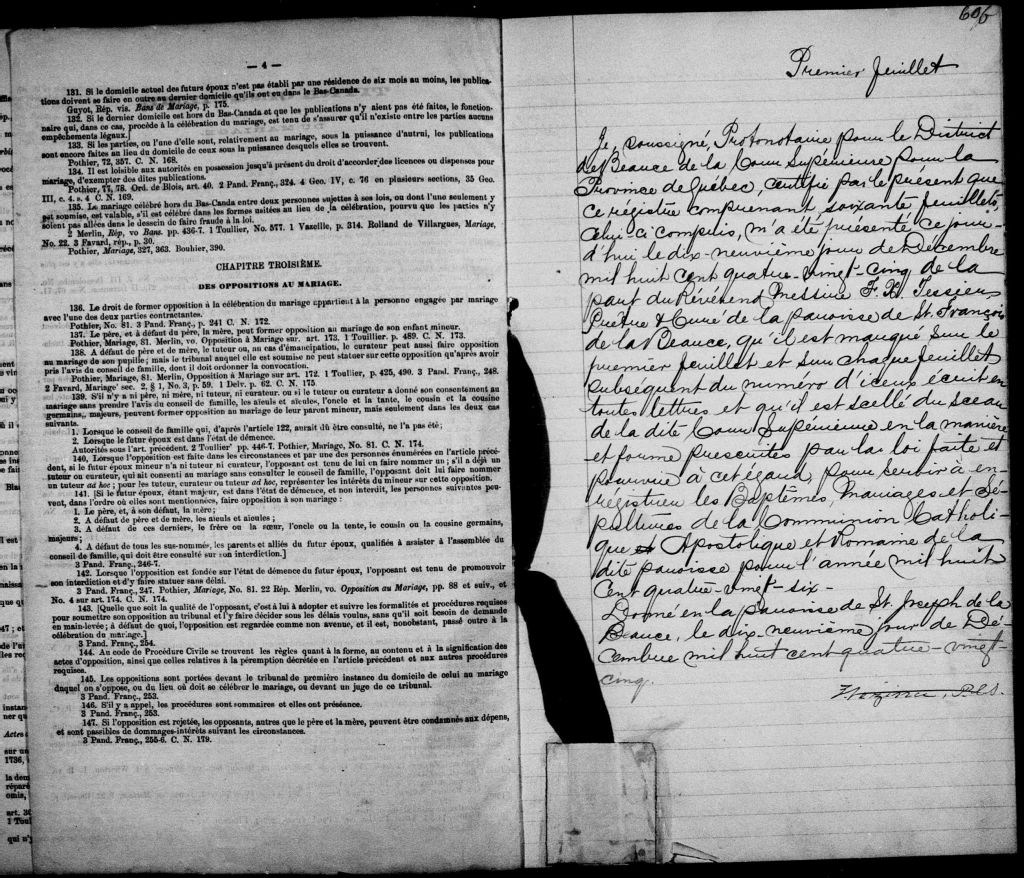 — 4 —
131. Si le domicile actuel des futurs époux n'est pas établi par une résidence de six mois au moins, les publica-
tions doivent se faire en outre au dernier domicile qu'ils ont eu dans le Bas-Canada.
Guyot, Rép. vis. Bans de Mariage, p. 175.
132. Si le dernier domicile est hors du Bas-Canada et que les publications n'y aient pas été faites, le fonction-
naire qui, dans ce cas, procède à la célébration du mariage, est tenu de s'assurer qu'il n'existe entre les parties aucuns
empêchements légaux.
133. Si les parties, ou l'une d'elles sont, relativement au mariage, sous la puissance d'autrui, les publications
sont encore faites au lieu du domicile de ceux sous la puissance desquels elles se trouvent.
Pothier, 72, 357. C. N. 168.
134. Il est loisible aux autorités en possession jusqu'à présent du droit d'accorder des licences ou dispenses pour
mariage, d'exempter des dites publications.
Pothier, 77, 78. Ord. de Blois, art. 40. 2 Pand. Franç., 324. 4 Geo. IV, c. 76 en plusieurs sections, 35 Geo.
III, c. 4. s. 4 C. N. 169.
135. Le mariage célébré hors du Bas-Canada entre deux personnes sujettes à ses lois, ou dont l'une seulement y
est soumise, est valable, s'il est célébré dans les formes usitées au lieu de la célébration, pourvu que les parties n'y
soient pas allées dans le dessein de faire fraude à la loi.
2 Merlin, Rép, vo Bans. pp. 436-7. 1 Toulier, No. 577. 1 Vazeille, p. 314. Rolland de Villargues, Mariage,
No. 22. 3 Favard, rép., p. 30.
Pothier, Mariage, 327, 363. Bouhier, 390.
CHAPITRE TROISIÈME.
DES OPPOSITIONS AU MARIAGE.
136. Le droit de former opposition à la célébration du mariage appartient à la personne engagée par mariage
avec l'une des deux parties contractantes.
Pothier, No. 81. 3 Pand. Franç., p. 241 C. N. 172.
137. Le père, et à défaut du père, la mère, peut former opposition au mariage de son enfant mineur.
Pothier, Mariage, 81. Merlin, vo. Opposition à Mariage sur. art. 173. 1 Toullier. p. 489. C. N. 173.
138. A défaut de père et de mère, le tuteur ou, au cas d'émancipation, le curateur peut aussi faire opposition
au mariage de son pupille; mais le tribunal auquel elle est soumise ne peut statuer sur cette opposition qu'après avoir
pris l'avis du conseil de famille, dont il doit ordonner la convocation.
Pothier, Mariage, 81. Merlin, Opposition à Mariage sur art. 172. 1 Toulier, p. 425, 490. 3 Pand. Franç., 248.
2 Favard, Mariage' sec. 2, § 1, No. 3, p. 59. 1 Delv. p. 62. C. N. 175.
139. S'il n'y a ni père, ni mère, ni tuteur, ni curateur. ou si le tuteur ou curateur a donné son consentement au
mariage sans prendre l'avis du conseil de famille, les aïeuls et aïeules, l'oncle et la tante, le cousin et la cousine
germains, majeurs, peuvent former opposition au mariage de leur parent mineur, mais seulement dans les deux cas
suivants.
1. Lorsque le conseil de famille qui, d'après l'article 122, aurait dû être consulté, ne l'a pas été;
2. Lorsque le futur époux est dans l'état de démence.
Autorités sous l'art. précédent. 2 Toullier' pp. 446-7. Pothier, Mariage, No. 81. C. N. 174.
140. Lorsque l'opposition est faite dans les circonstances et par une des personnes énumérées en l'article précé-
dent, si le futur époux mineur n'a ni tuteur ni curateur, l'opposant est tenu de lui en faire nommer un; s'il a déjà un
tuteur ou curateur, qui ait consenti au mariage sans consulter le conseil de famille, l'opposant doit lui faire nommer
un tuteur ad hoc; pour les tuteur, curateur ou tuteur ad hoc, représenter les intérêts du mineur sur cette opposition.
141. [Si le futur époux, étant majeur, est dans l'état de démence, et non interdit, les personnes suivantes peu-
vent, dans l'ordre où elles sont mentionnées, faire opposition à son mariage:
1. Le père, et, à son défaut, la mère;
2. A défaut de père et de mère, les aïeuls et aïeules;
3. A défaut de ces derniers, le frère ou la sœur, l'oncle ou la tente, le cousin ou la cousine germains,
majeurs;
4. A défaut de tous les sus-nommés, les parents et alliés du futur époux, qualifiés à assister à l'assemblée du
conseil de famille, qui doit être consulté sur son interdiction.]
3 Pand. Franç., 246-7.
142. Lorsque l'opposition est fondée sur l'état de démence du futur époux, l'opposant est tenu de promouvoir
son interdiction et d'y faire statuer sans délai.
3 Pand. Franç., 247. Pothier, Mariage, No. 81. 22 Rép. Merlin, vo. Opposition au Mariage, pp. 88 et suiv., et
No. 4 sur art. 174. C. N. 174.
143. [Quelle que soit la qualité de l'opposant, c'est à lui à adopter et suivre les formalités et procédures requises
pour soumettre son opposition au tribunal et l'y faire décider sous les délais voulus, sans qu'il soit besoin de demande
en main-levée; à défaut de quoi, l'opposition est regardée comme non avenue, et il est, nonobstant, passé outre à la
célébration du mariage.]
3 Pand. Franç., 254.
144. Au code de Procédure Civile se trouvent les règles quant à la forme, au contenu et à la signification des
actes d'opposition, ainsi que celles relatives à la péremption décrétée en l'article précédent et aux autres procédures
requises.
145. Les oppositions sont portées devant le tribunal de première instance du domicile de celui au mariage
duquel on s'oppose, ou du lieu où doit se célébrer le mariage, ou devant un juge de ce tribunal.
3 Pand. Franç., 253.
146. S'il y a appel, les procédures sont sommaires et elles ont préséance.
3 Pand. Franç., 253.
147. Si l'opposition est rejetée, les opposants, autres que le père et la mère, peuvent être condamnés aux dépens,
et sont passibles de dommages-intérêts suivant les circonstances.
3 Pand. Franç., 255-6. C. N. 179.
606
Premier feuillet
Je, soussigné, Protonotaire pour le District
de Beauce de la Cour Supérieure pour la
Province de Québec, certifie par le présent que
ce régistre comprenant soixante feuillets,
celui ci compris, m'a été présenté ce jour-
d'hui le dix-neuvième jour de Décembre
mil huit cent quatre-vingt-cinq de la
part du Révérend Messire F. X. Tessier,
Prêtre & Curé de la paroisse de St. François
de la Beauce, qu'il est marqué sur le
premier feuillet et sur chaque feuillet
subséquent du numéro d'iceux écrit en
toutes lettres et qu'il est scellé du sceau
de la dite Cour Supérieure en la manière
et forme prescrites par la loi faite et
pourvue à cet égard, pour servir à en-
régistrer les Baptêmes, Mariages et Sé-
pultures de la Communion Catholi-
que et Apostolique et Romaine de la
dite paroisse pour l'année mil huit
cent quatre-vingt six-
Donné en la paroisse de St. Joseph de la
Beauce, le dix-neuvième jour de Dé-
cembre mil huit cent quatre-vingt-
cinq.
P.C.S.